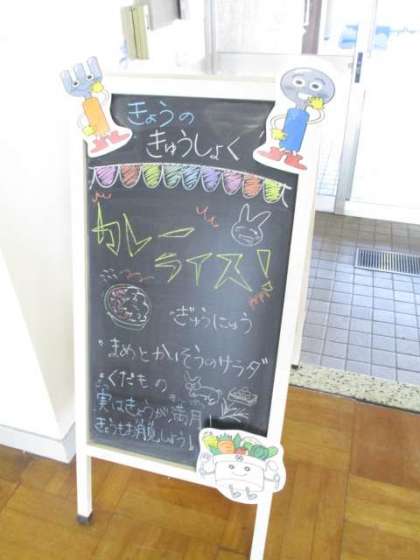 きょうの
きゅうしょく
カレー
ライス!
ぎゅうにゅう
まめとかいそうのサラダ
くだもの
実はきょうが満月